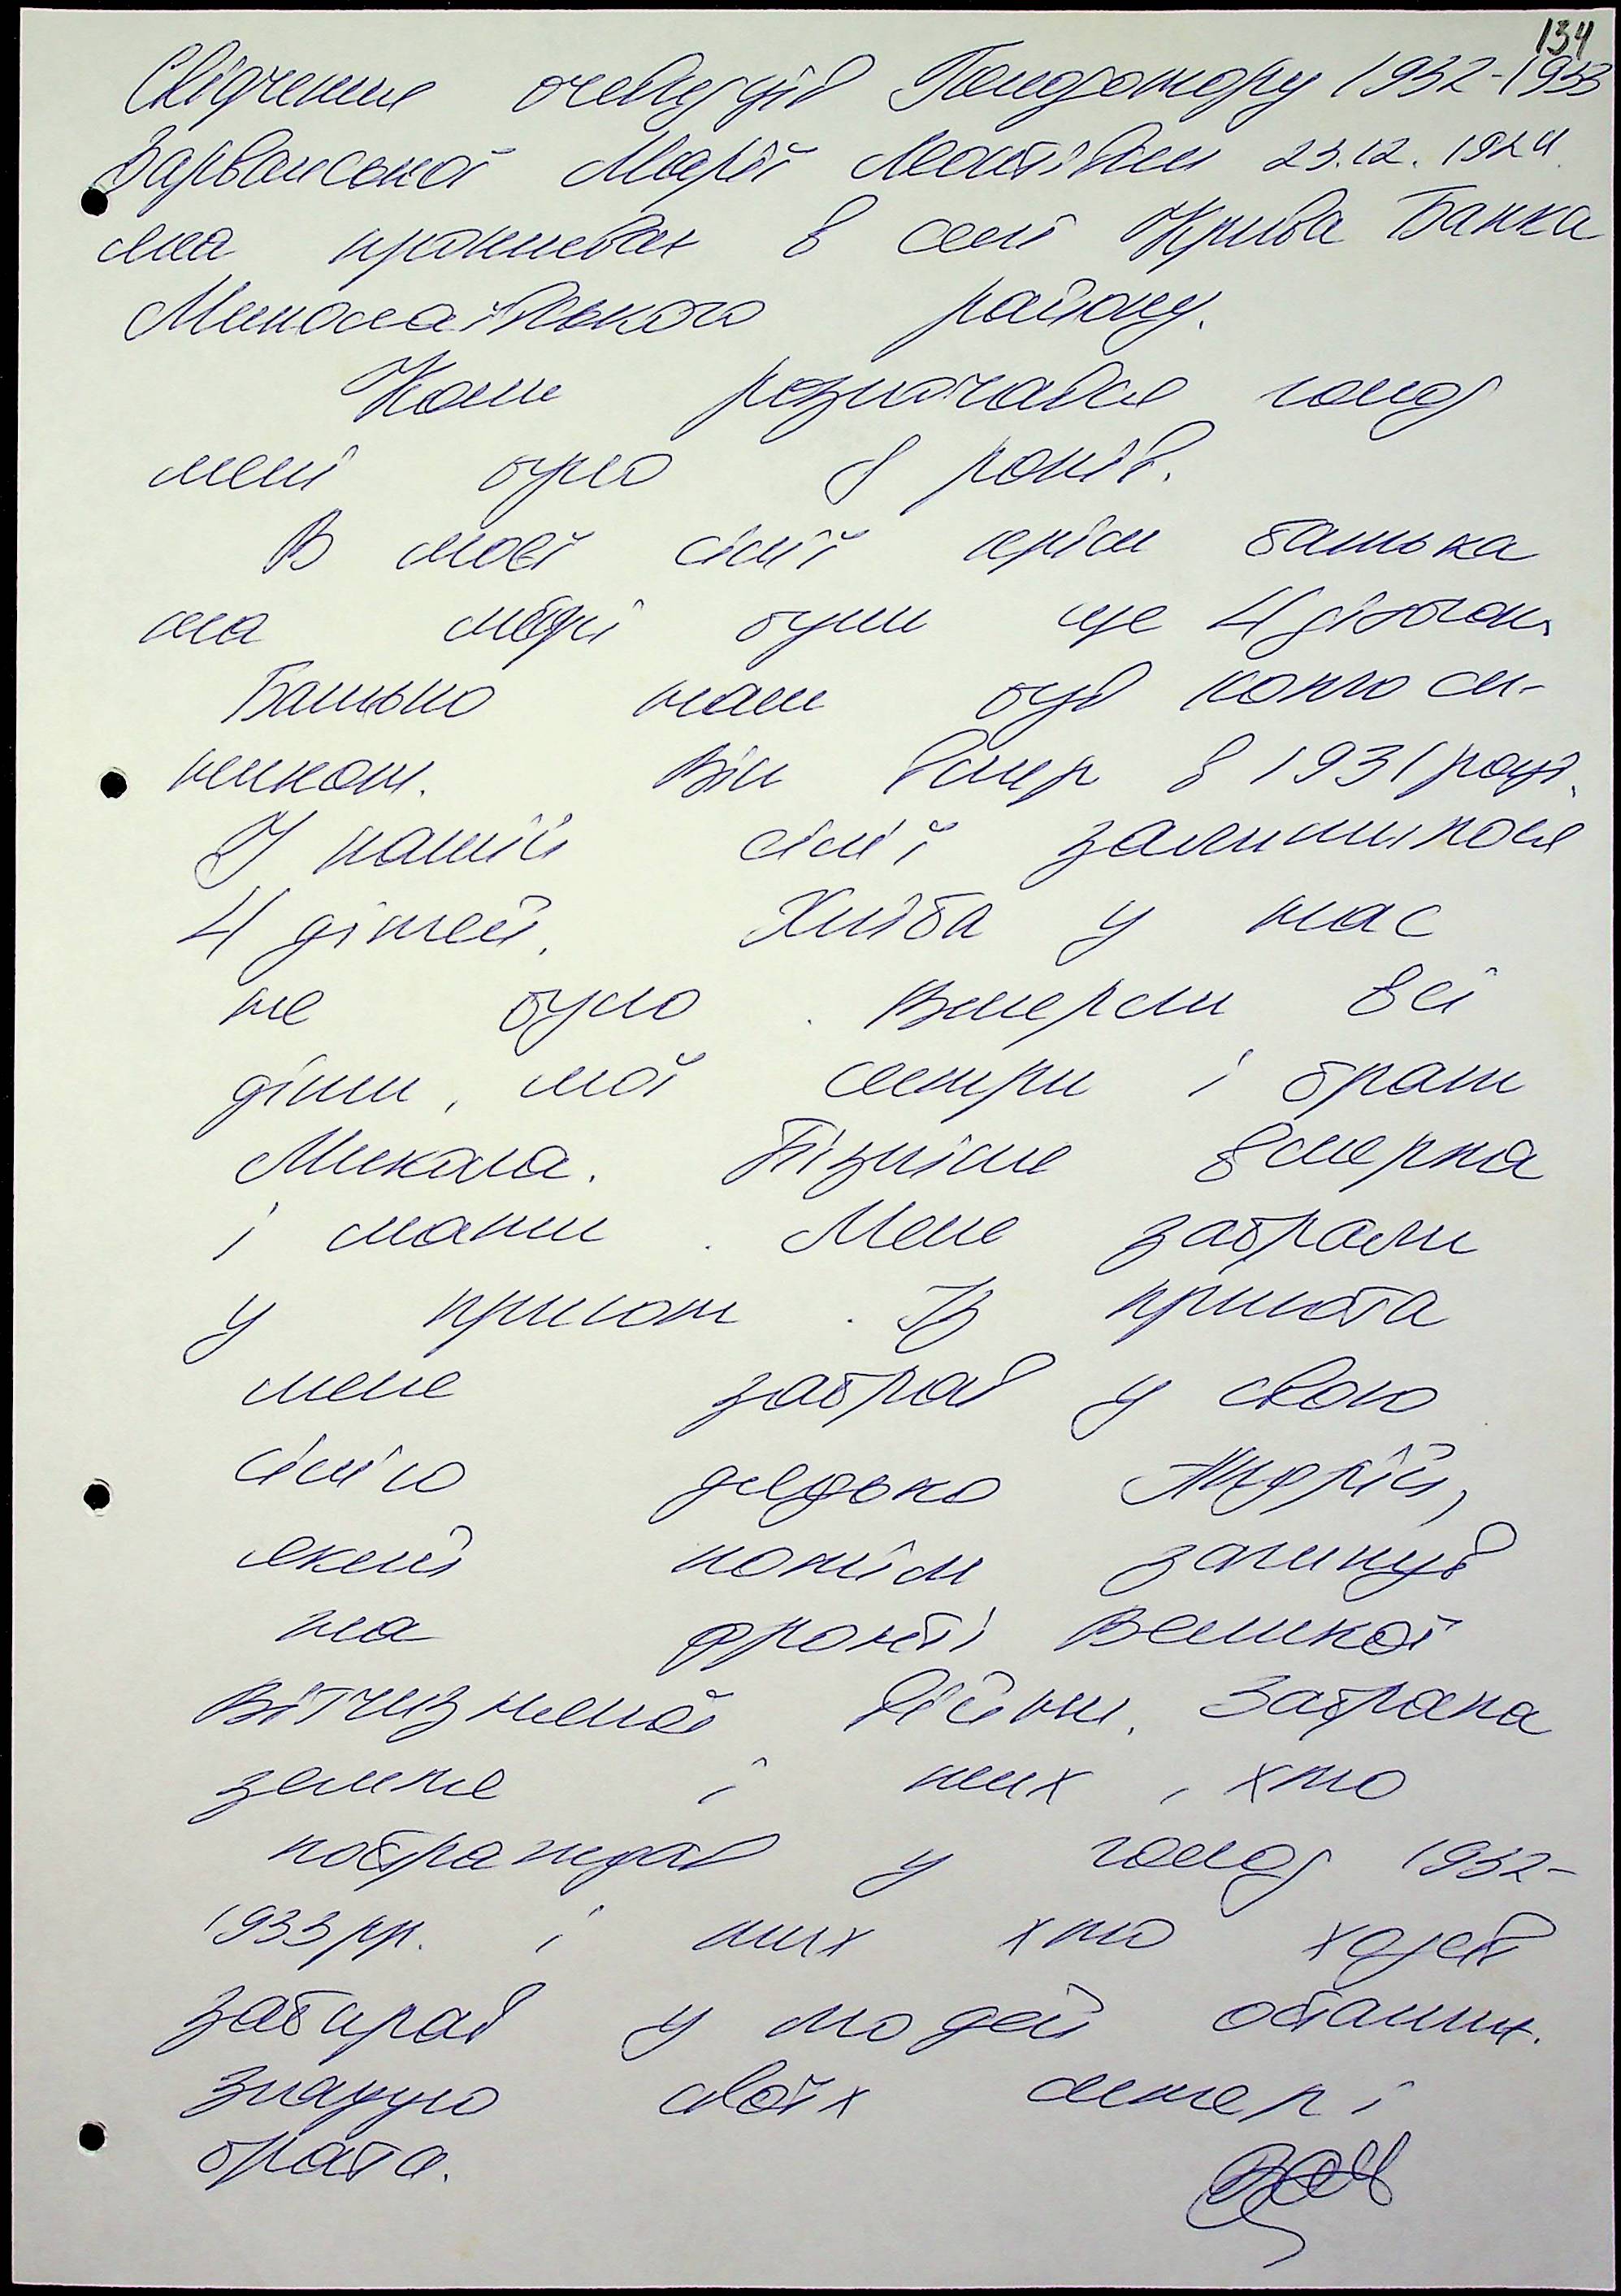 134
Свідчення очевидців Голодомору 1932-1933
Зарванської Марії 23.12.1924
яка проживає в селі Крива Балка
Миколаївського району.
Коли розпочався голод
мені було 8 років.
В моєї сімїї крім батька
на матері були ще 4 дівчат.
Батько наш був колгосп-
ником. Він вмер в 1931 році.
У нашій сім'ї залишилося
4 дітей. Хліба у нас
не було. Вмерли всі
діти, мої сестри і брат
Микола. Пізніше вмерла
і мати. Мене забрали
у приют. Із приюта
мене забрав у свою
сім'ю дядько Андрій,
який потім загинув
на фронті Великої
Вітчизняної війни. Забрала
земля і тих, хто
пострaждав у голод 1932-
1933 рр. і тих хто ходив
забирав у людей останнє.
Згадую своїх сестер і
брата.